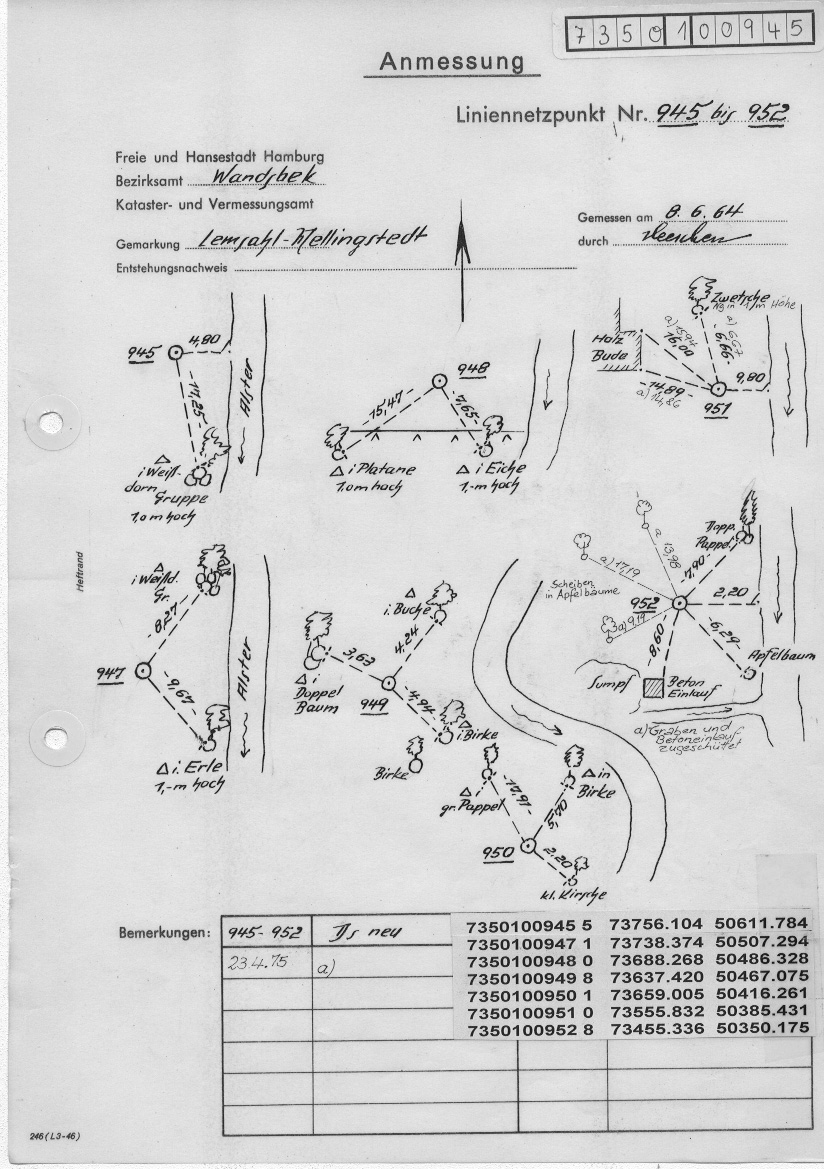 7350100945
Anmessung
Liniennetzpunkt Nr. 945 bis 952
Freie und Hansestadt Hamburg
Bezirksamt Wandsbek
Kataster- und Vermessungsamt
Gemarkung Lemsahl-Mellingstedt
Entstehungsnachweis
Gemessen am 8.6.64
durch
945
4,80
14,25
Alster
i Weiß-
dorn
Gruppe
1,0 m hoch
948
15,47
7,65
i Platane
1,0 m hoch
i Eiche
1,-m hoch
Zwetsche
Ng in 1m Höhe
Holz
Bude
a) 15,94
16,00
a) 6,67
6,66
14,89
a) 14,86
9,80
951
Heftrand
i Weißd.
Gr.
8,27
947
9,67
Alster
i. Erle
1,-m hoch
i. Buche
3,63
4,24
i
Doppel
Baum
949
4,94
i Birke
Birke
i
gr. Pappel
17,91
in
Birke
5,70
950
2,20
kl. Kirsche
Dopp.
Pappel
a) 13,98
a) 17,19
7,90
Scheiben
in Apfelbäume
952
2,20
a) 9,19
8,60
6,29
Apfelbaum
Sumpf
Beton
Einlauf
a) Graben und
Betoneinlauf
zugeschüttet
Bemerkungen:
945-952 Ds neu
23.4.75 a)
7350100945 5 73756.104 50611.784
7350100947 1 73738.374 50507.294
7350100948 0 73688.268 50486.328
7350100949 8 73637.420 50467.075
7350100950 1 73659.005 50416.261
7350100951 0 73555.832 50385.431
7350100952 8 73455.336 50350.175
246 (L3-46)